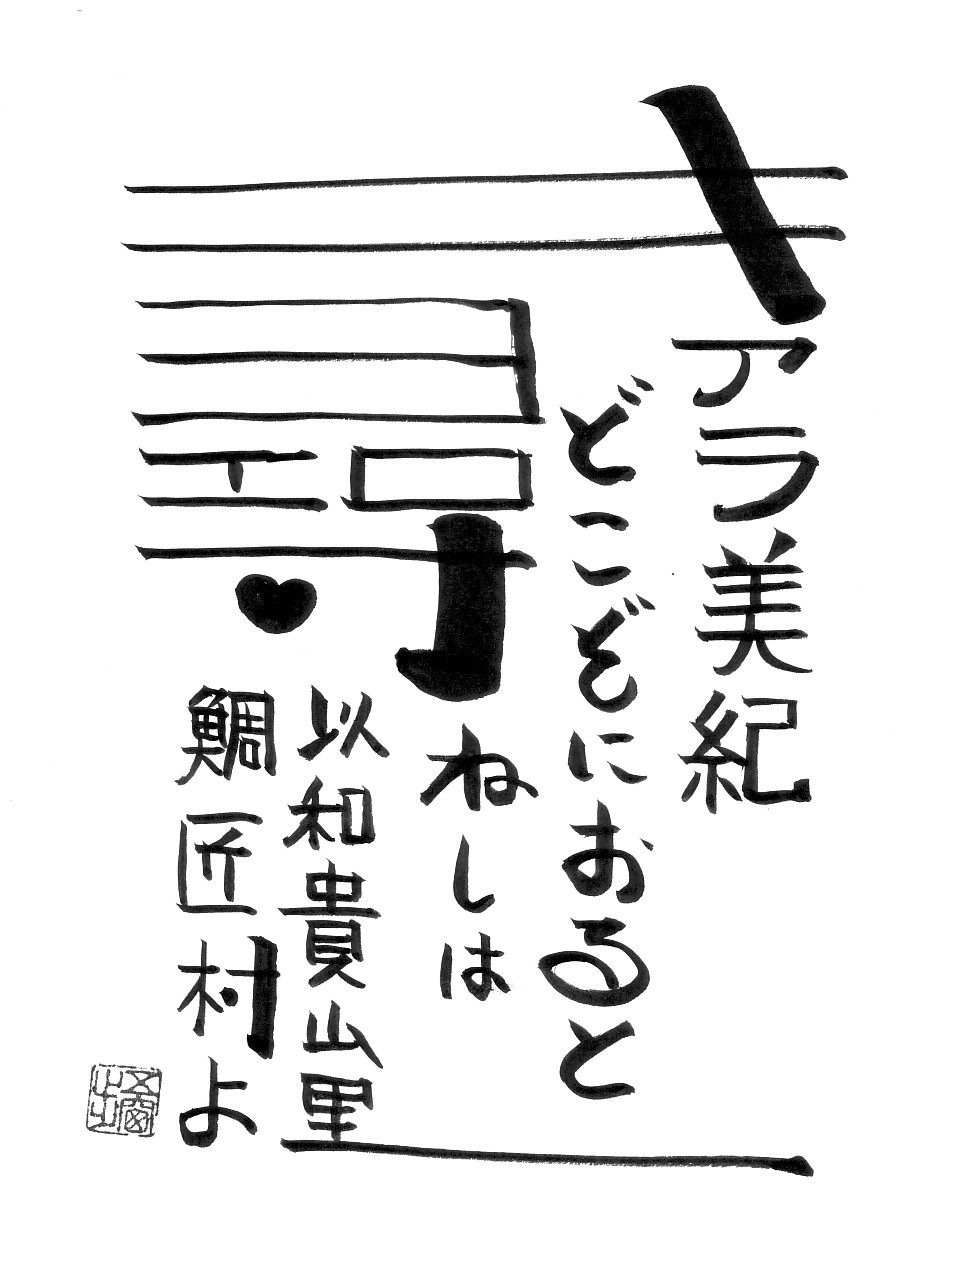 キアラ美紀
どこぞにおると
尋ねしは
以和貴山里
鯛匠村よ